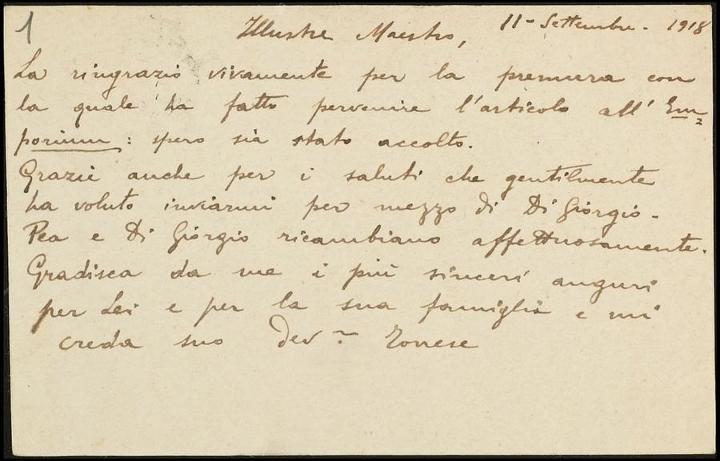 1
Illustre Maestro, 11 - Settembre - 1918
La ringrazio vivamente per la premura con
la quale ha fatto pervenire l'articolo all' Em=
porium : spero sia stato accolto.
Grazie anche per i saluti che gentilmente
ha voluto inviarmi per mezzo di Di Giorgio -
Pea e Di Giorgio ricambiano affettuosamente.
Gradisca da me i più sinceri auguri
per Lei e per la sua famiglia e mi
creda suo Dev.